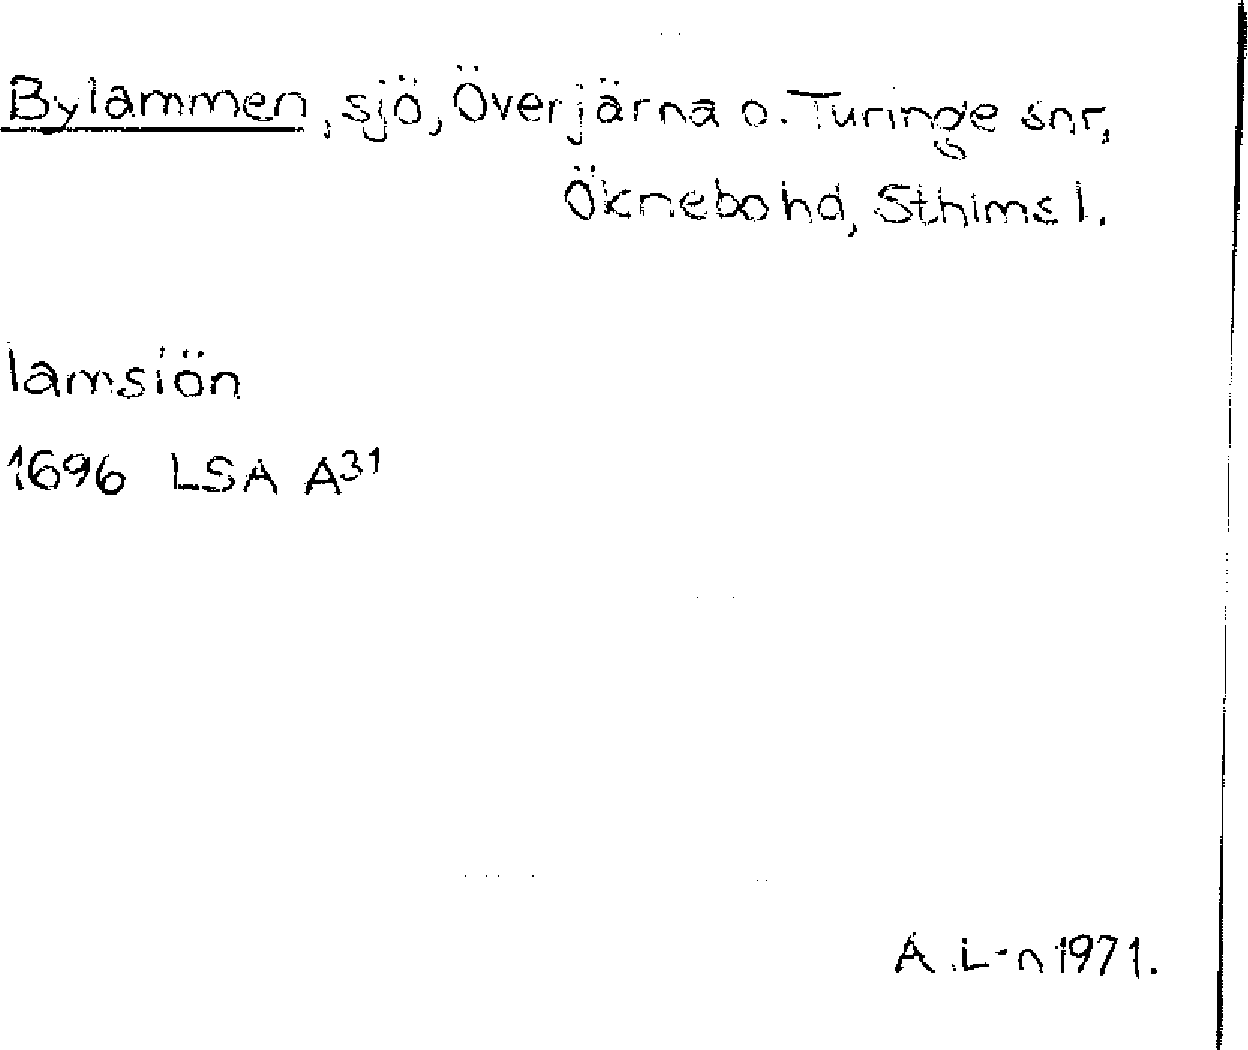 Bylammen, sjö, Överjärna o. Turinge snr,
Öknebo hd, Sthlms l.
lamsiön
1696 LSA A31
A.L-n 1971.